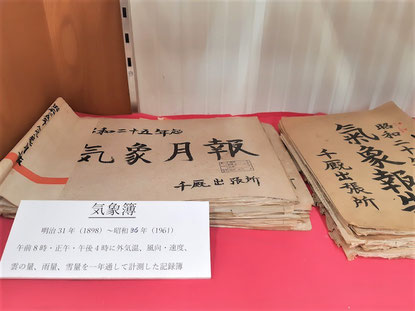 昭和二十五年ゟ
気象月報
千厩出張所
昭和二十
氣象報
千厩出張所
気象簿
明治31年（1898）～昭和36年（1961）
午前8時・正午・午後4時に外気温、風向・速度、
雲の量、雨量、雪量を一年通して計測した記録簿